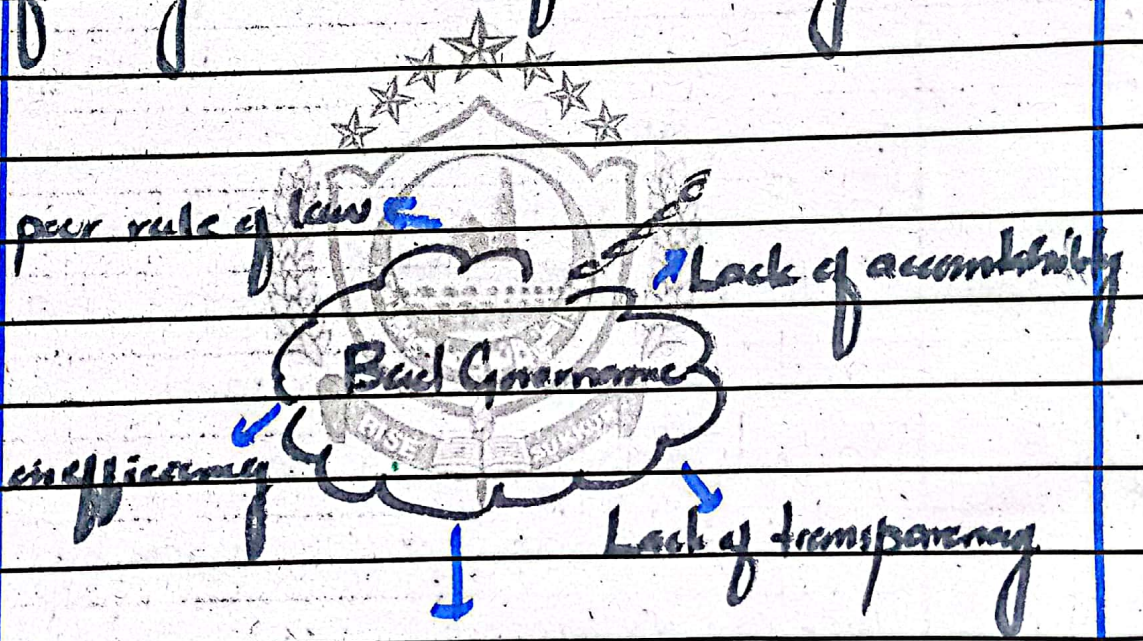 poor rule of law
Lack of accountability
Bad Governance
RISE
SUKKUR
inefficiency
Lack of transparency